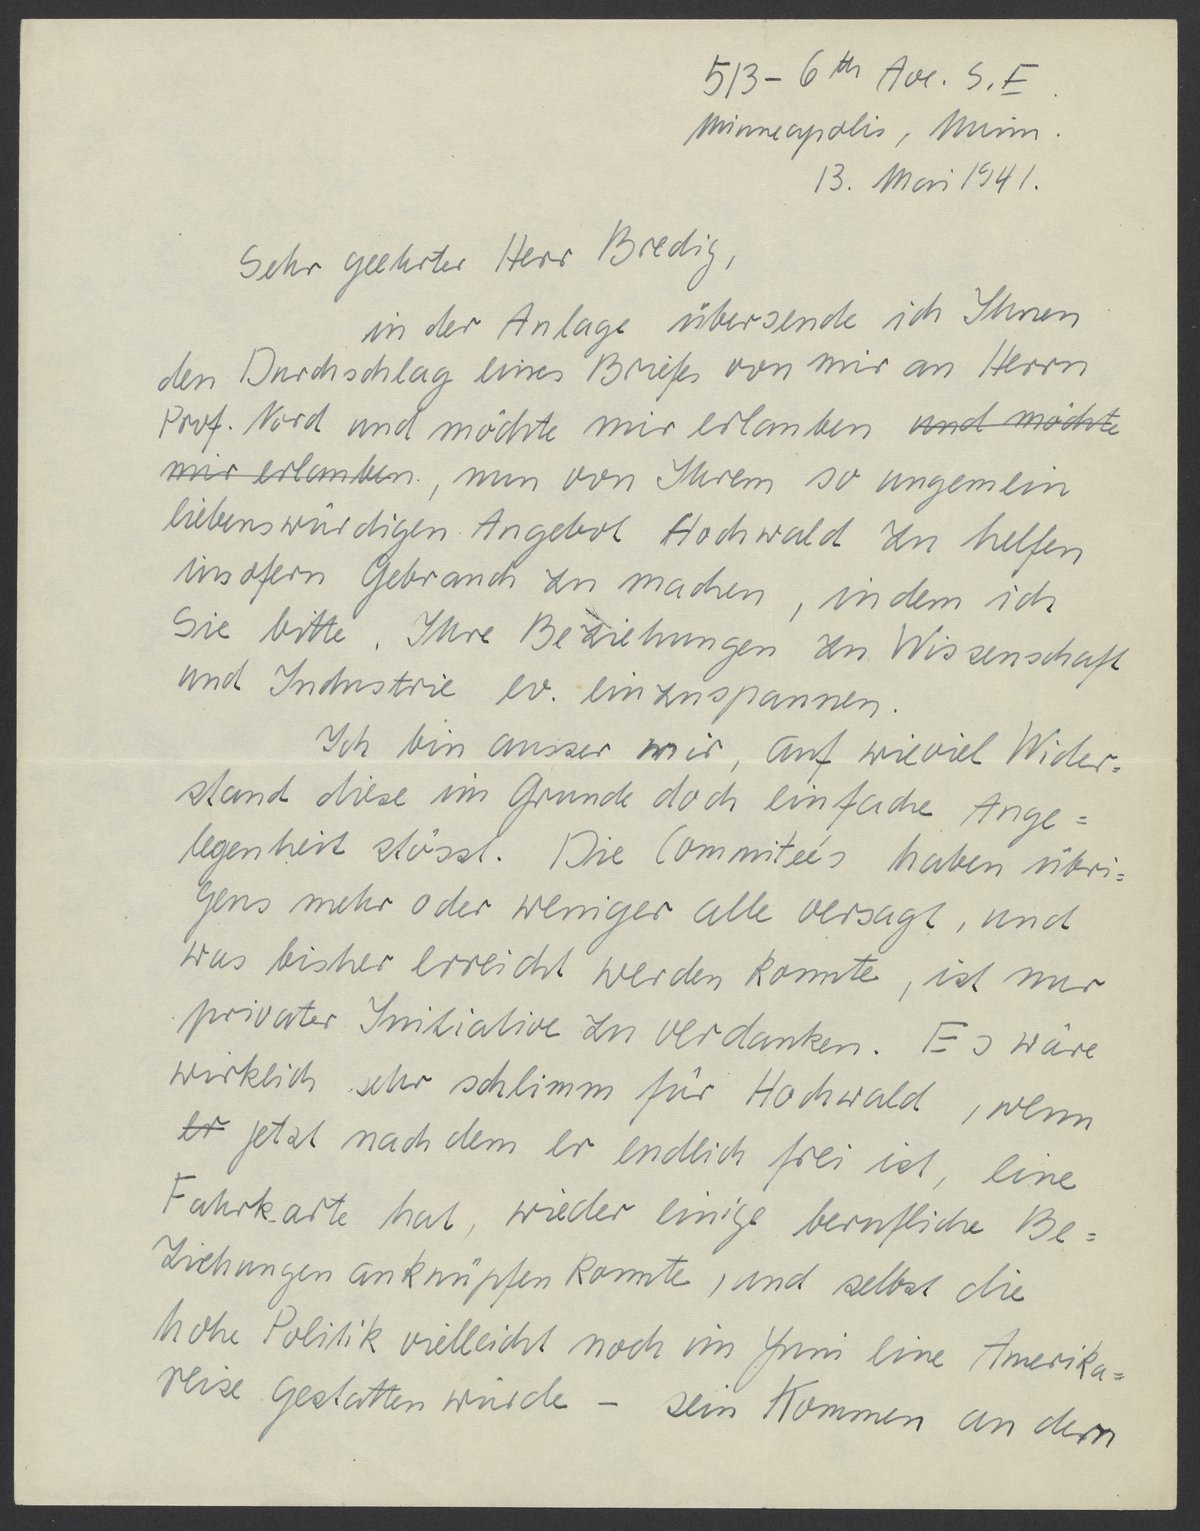 513 - 6th Ave. S.E.
Minneapolis, Minn.
13. Mai 1941.
Sehr geehrter Herr Bredig,
in der Anlage übersende ich Ihnen
den Durchschlag eines Briefes von mir an Herrn
Prof. Nord und möchte mir erlauben und möchte
mir erlauben, nun von Ihrem so ungemein
liebenswürdigen Angebot Hochwald zu helfen
insofern Gebrauch zu machen, indem ich
Sie bitte, Ihre Beziehungen zu Wissenschaft
und Industrie ev. einzuspannen.
Ich bin ausser mir, auf wieviel Wider=
stand diese im Grunde doch einfache Ange=
legenheit stösst. Die Commiteés haben übri=
gens mehr oder weniger alle versagt, und
was bisher erreicht werden konnte, ist nur
privater Initiative zu verdanken. Es wäre
wirklich sehr schlimm für Hochwald, wenn
er jetzt nachdem er endlich frei ist, eine
Fahrkarte hat, wieder einige berufliche Be=
ziehungen anknüpfen konnte, und selbst die
hohe Politik vielleicht noch im Juni eine Amerika=
reise gestatten würde - sein Kommen an dem